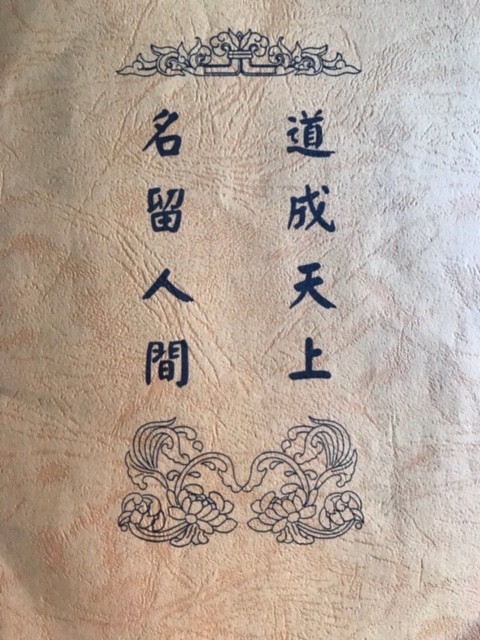 道成天上
名留人間